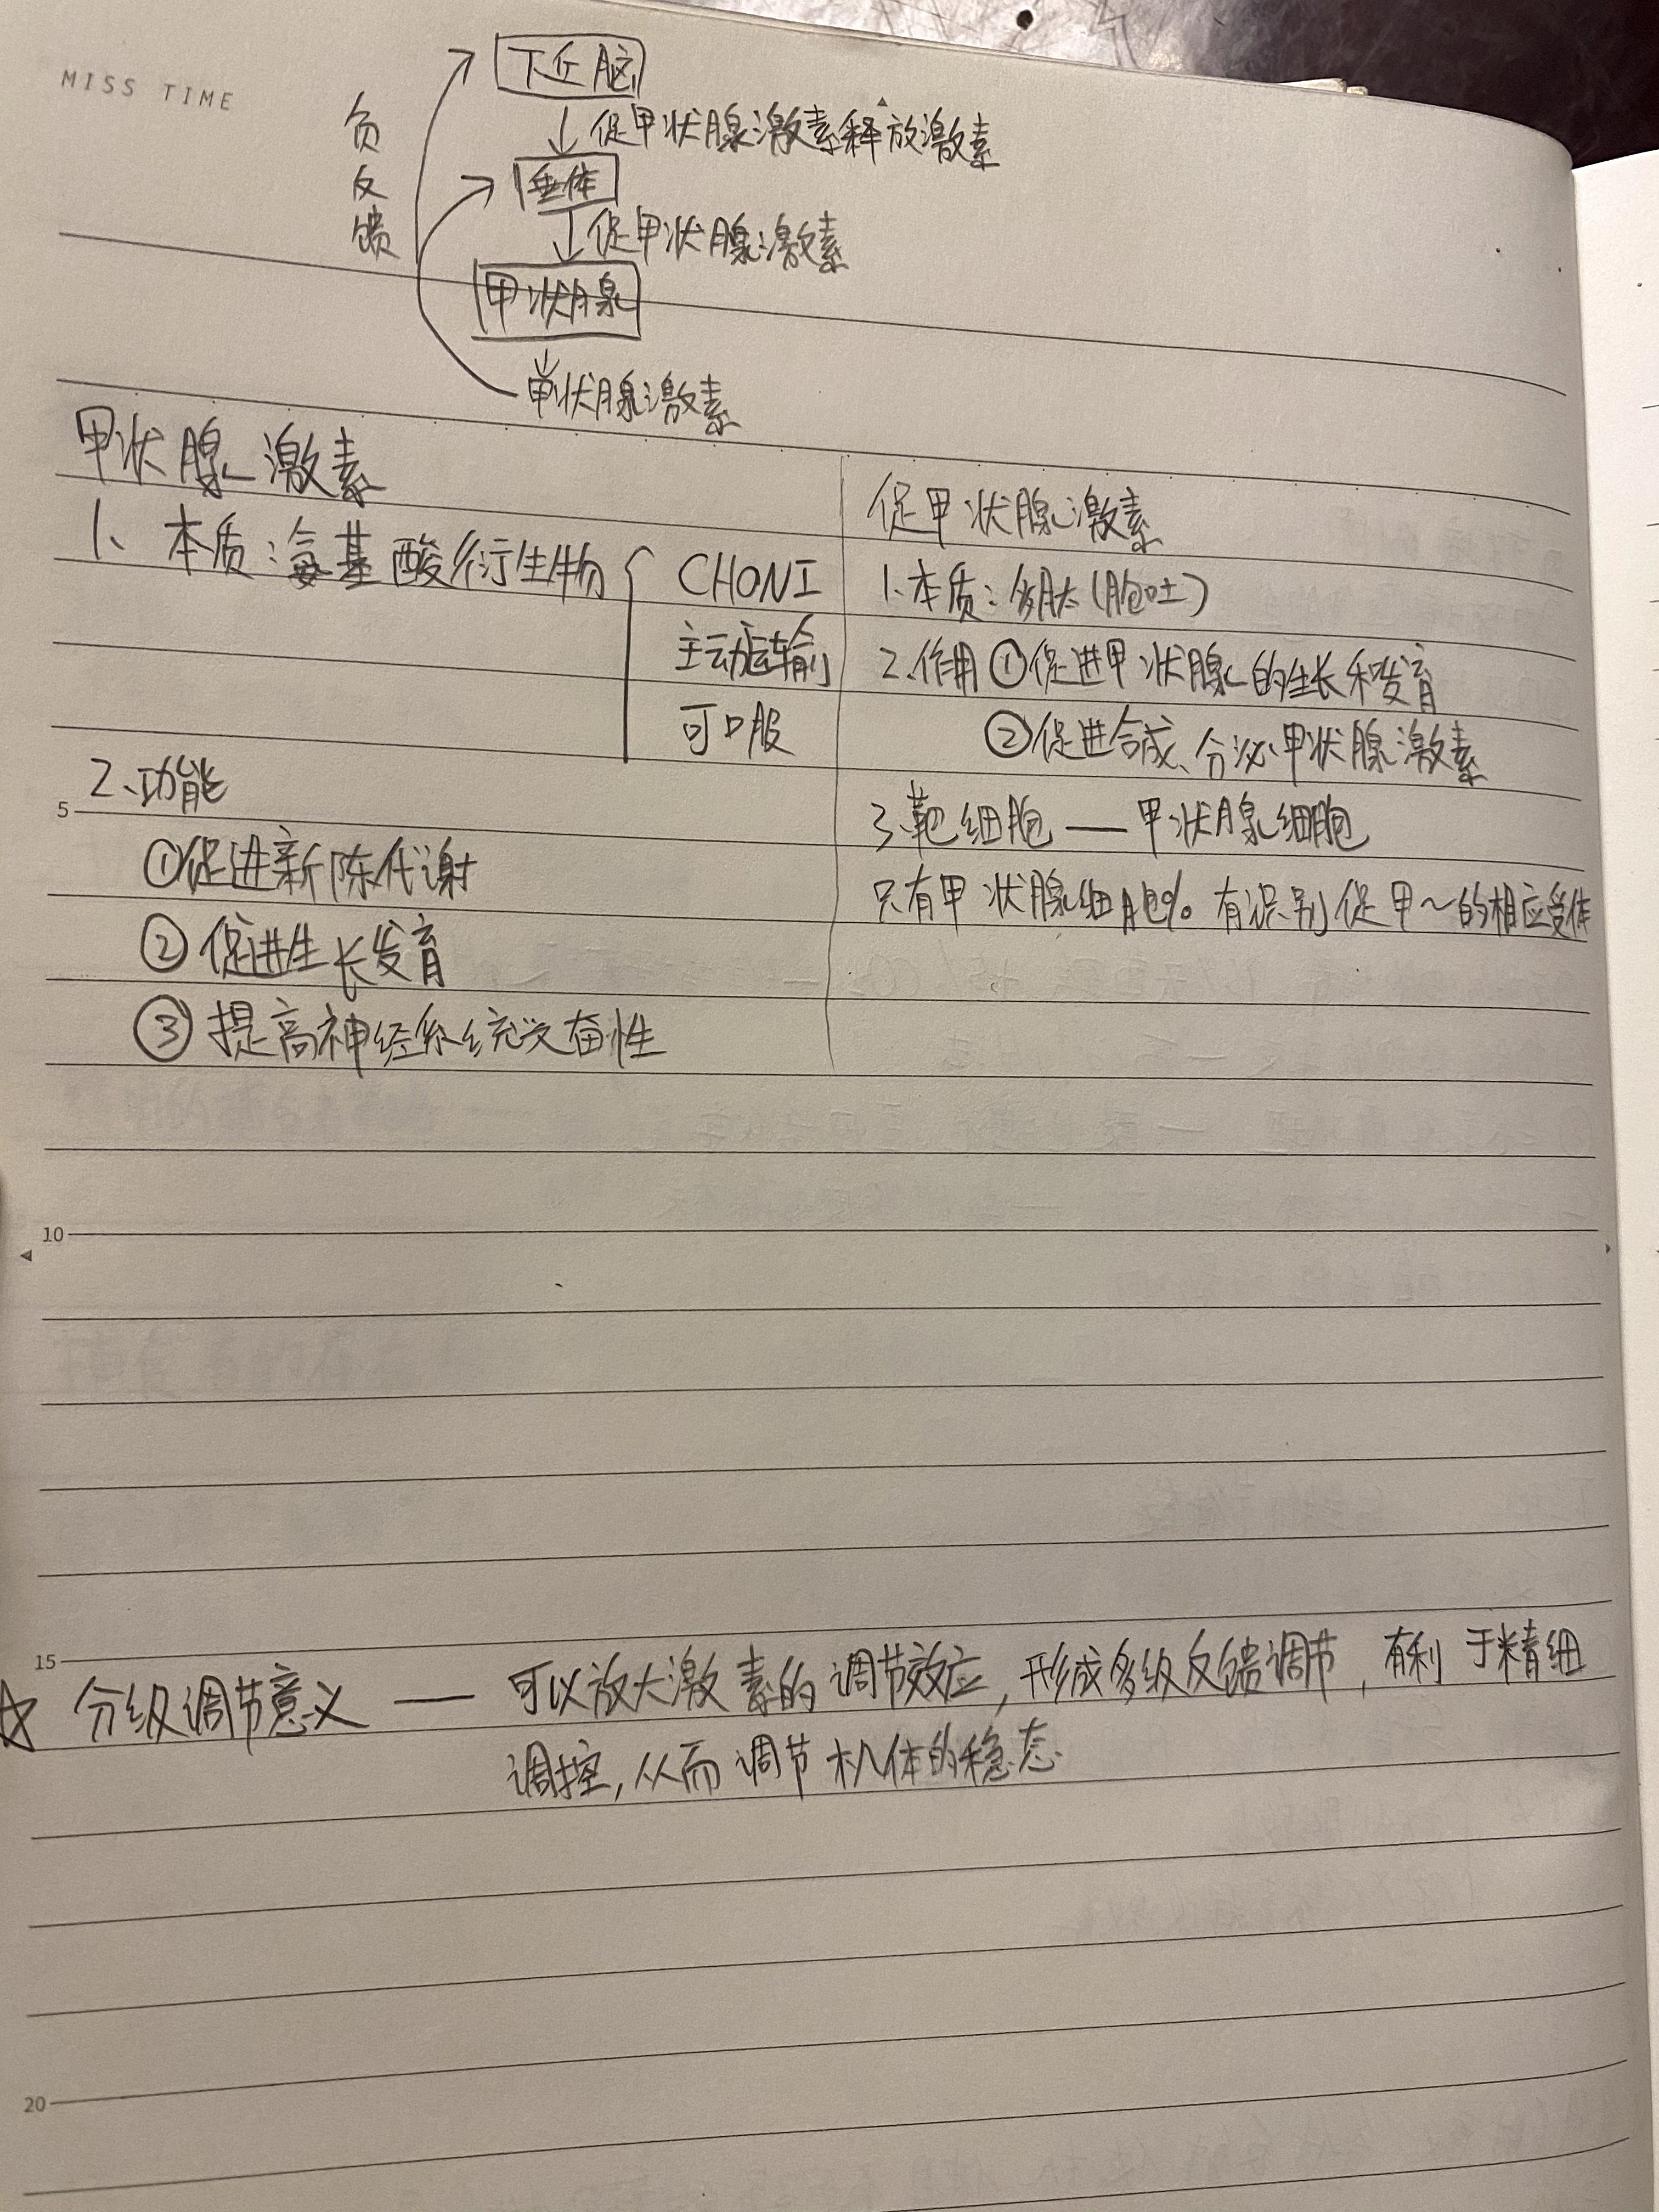 MISS TIME
下丘脑
↓促甲状腺激素释放激素
负反馈
垂体
↓促甲状腺激素
甲状腺
↓
甲状腺激素
甲状腺激素
1、本质：氨基酸衍生物 CHONI
主动运输
可口服
5
2.功能
①促进新陈代谢
②促进生长发育
③提高神经系统兴奋性
促甲状腺激素
1.本质：多肽（胞吐）
2.作用①促进甲状腺的生长和发育
②促进合成、分泌甲状腺激素
3.靶细胞——甲状腺细胞
只有甲状腺细胞。有识别促甲～的相应受体
10
15
☆ 分级调节意义——可以放大激素的调节效应，形成多级反馈调节，有利于精细
调控，从而调节机体的稳态.
20